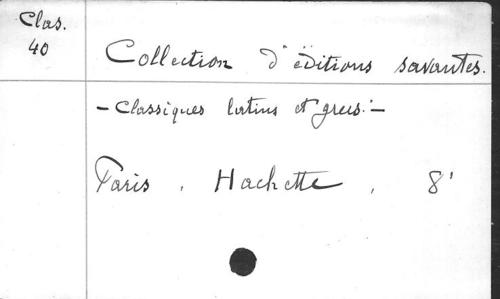 Clas.
40
Collection d'éditions savantes.
- Classiques latins et grecs: -
Paris, Hachette, 8'